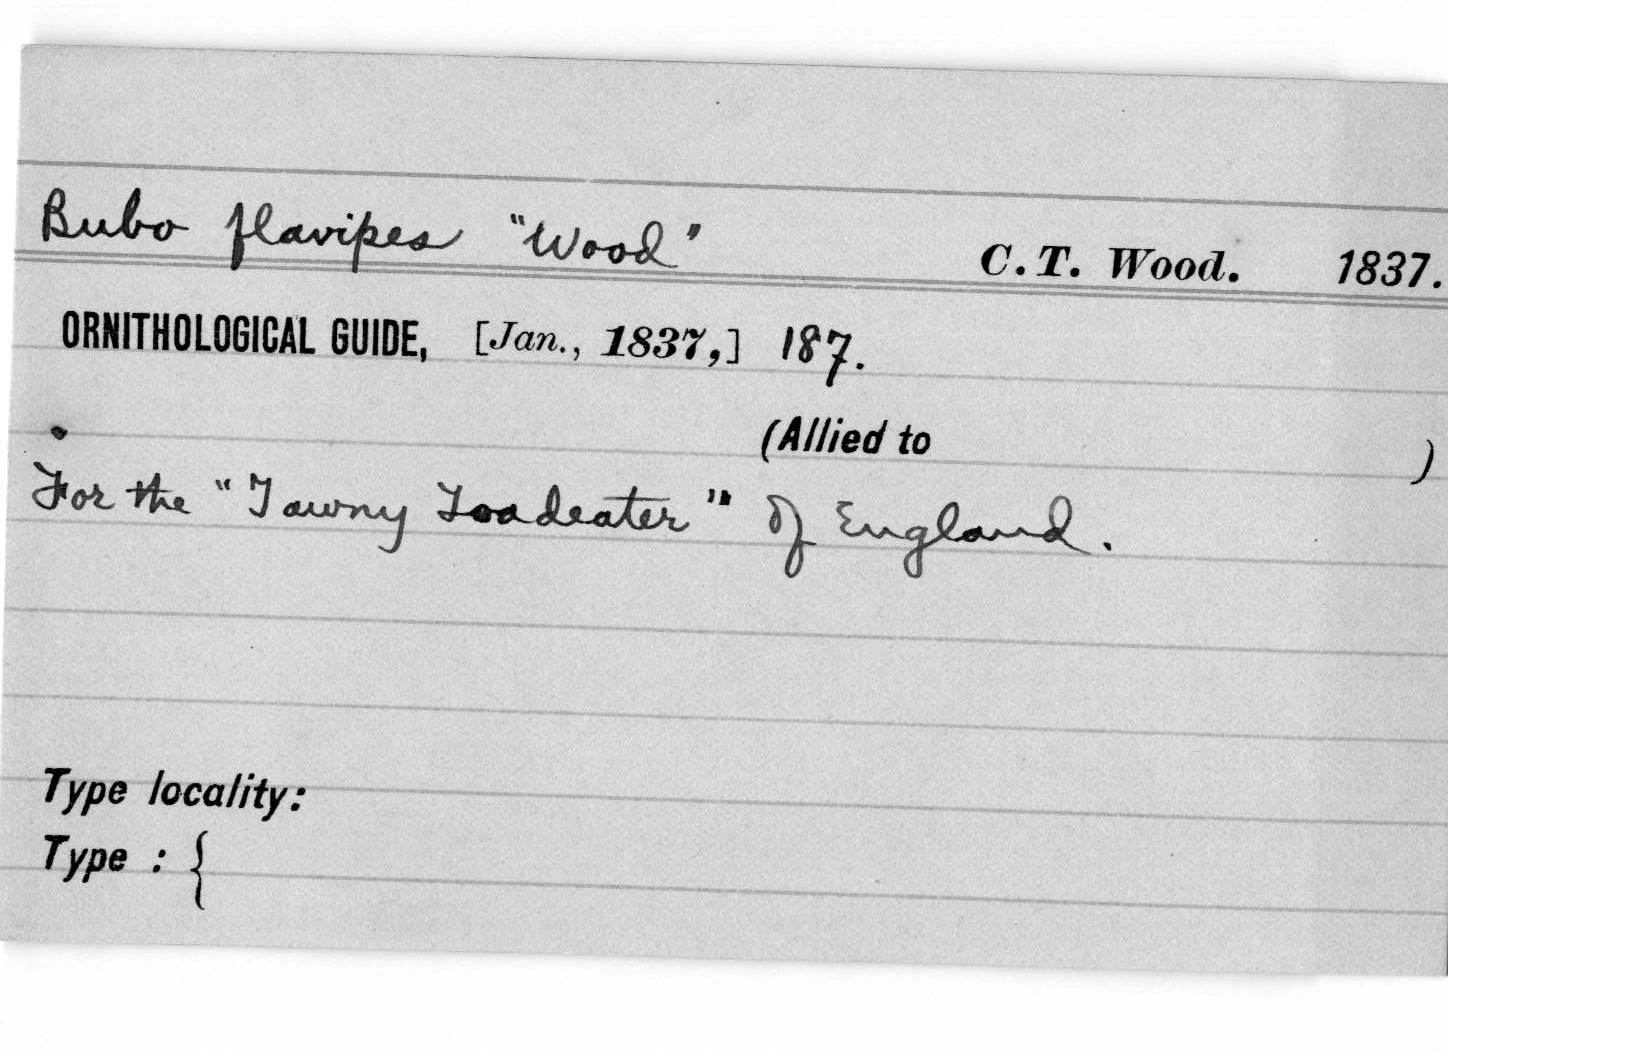 Bubo flavipes "Wood" C. T. Wood. 1837.
ORNITHOLOGICAL GUIDE, [Jan., 1837,] 187.
(Allied to )
For the "Tawny Toadeater" of England.
Type locality:
Type : {